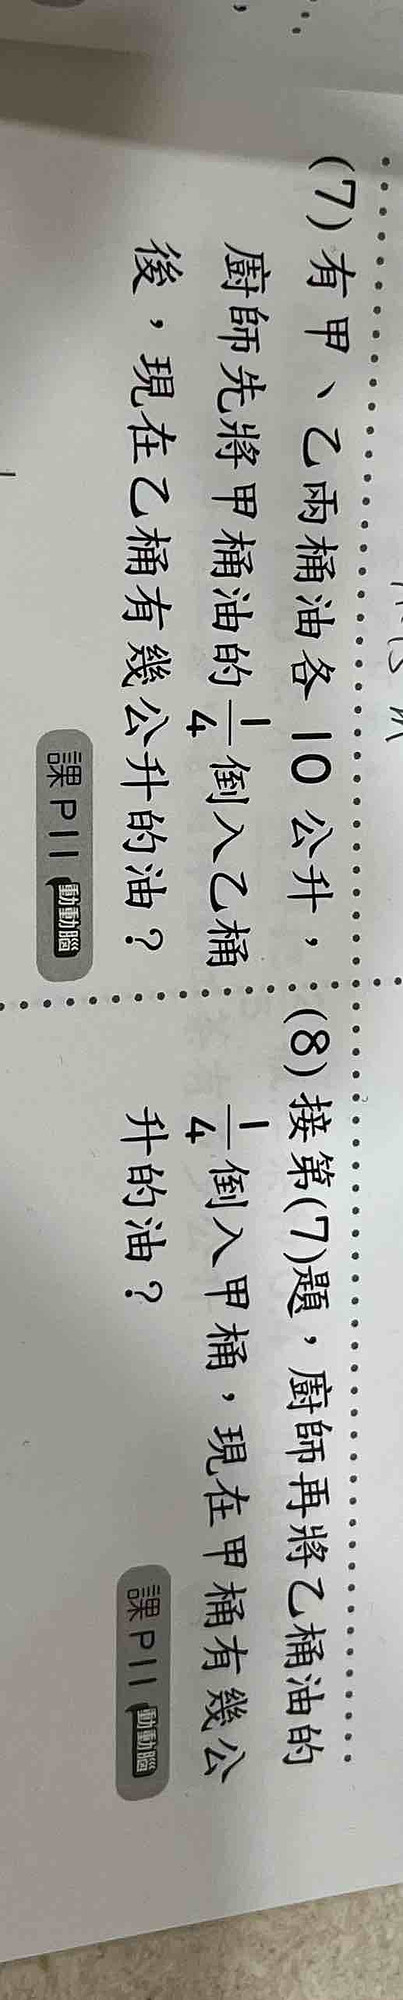 (7)有甲、乙兩桶油各10公升，
廚師先將甲桶油的1/4倒入乙桶
後，現在乙桶有幾公升的油？
課P11 動動腦
(8)接第(7)題，廚師再將乙桶油的
1/4倒入甲桶，現在甲桶有幾公
升的油？
課P11 動動腦